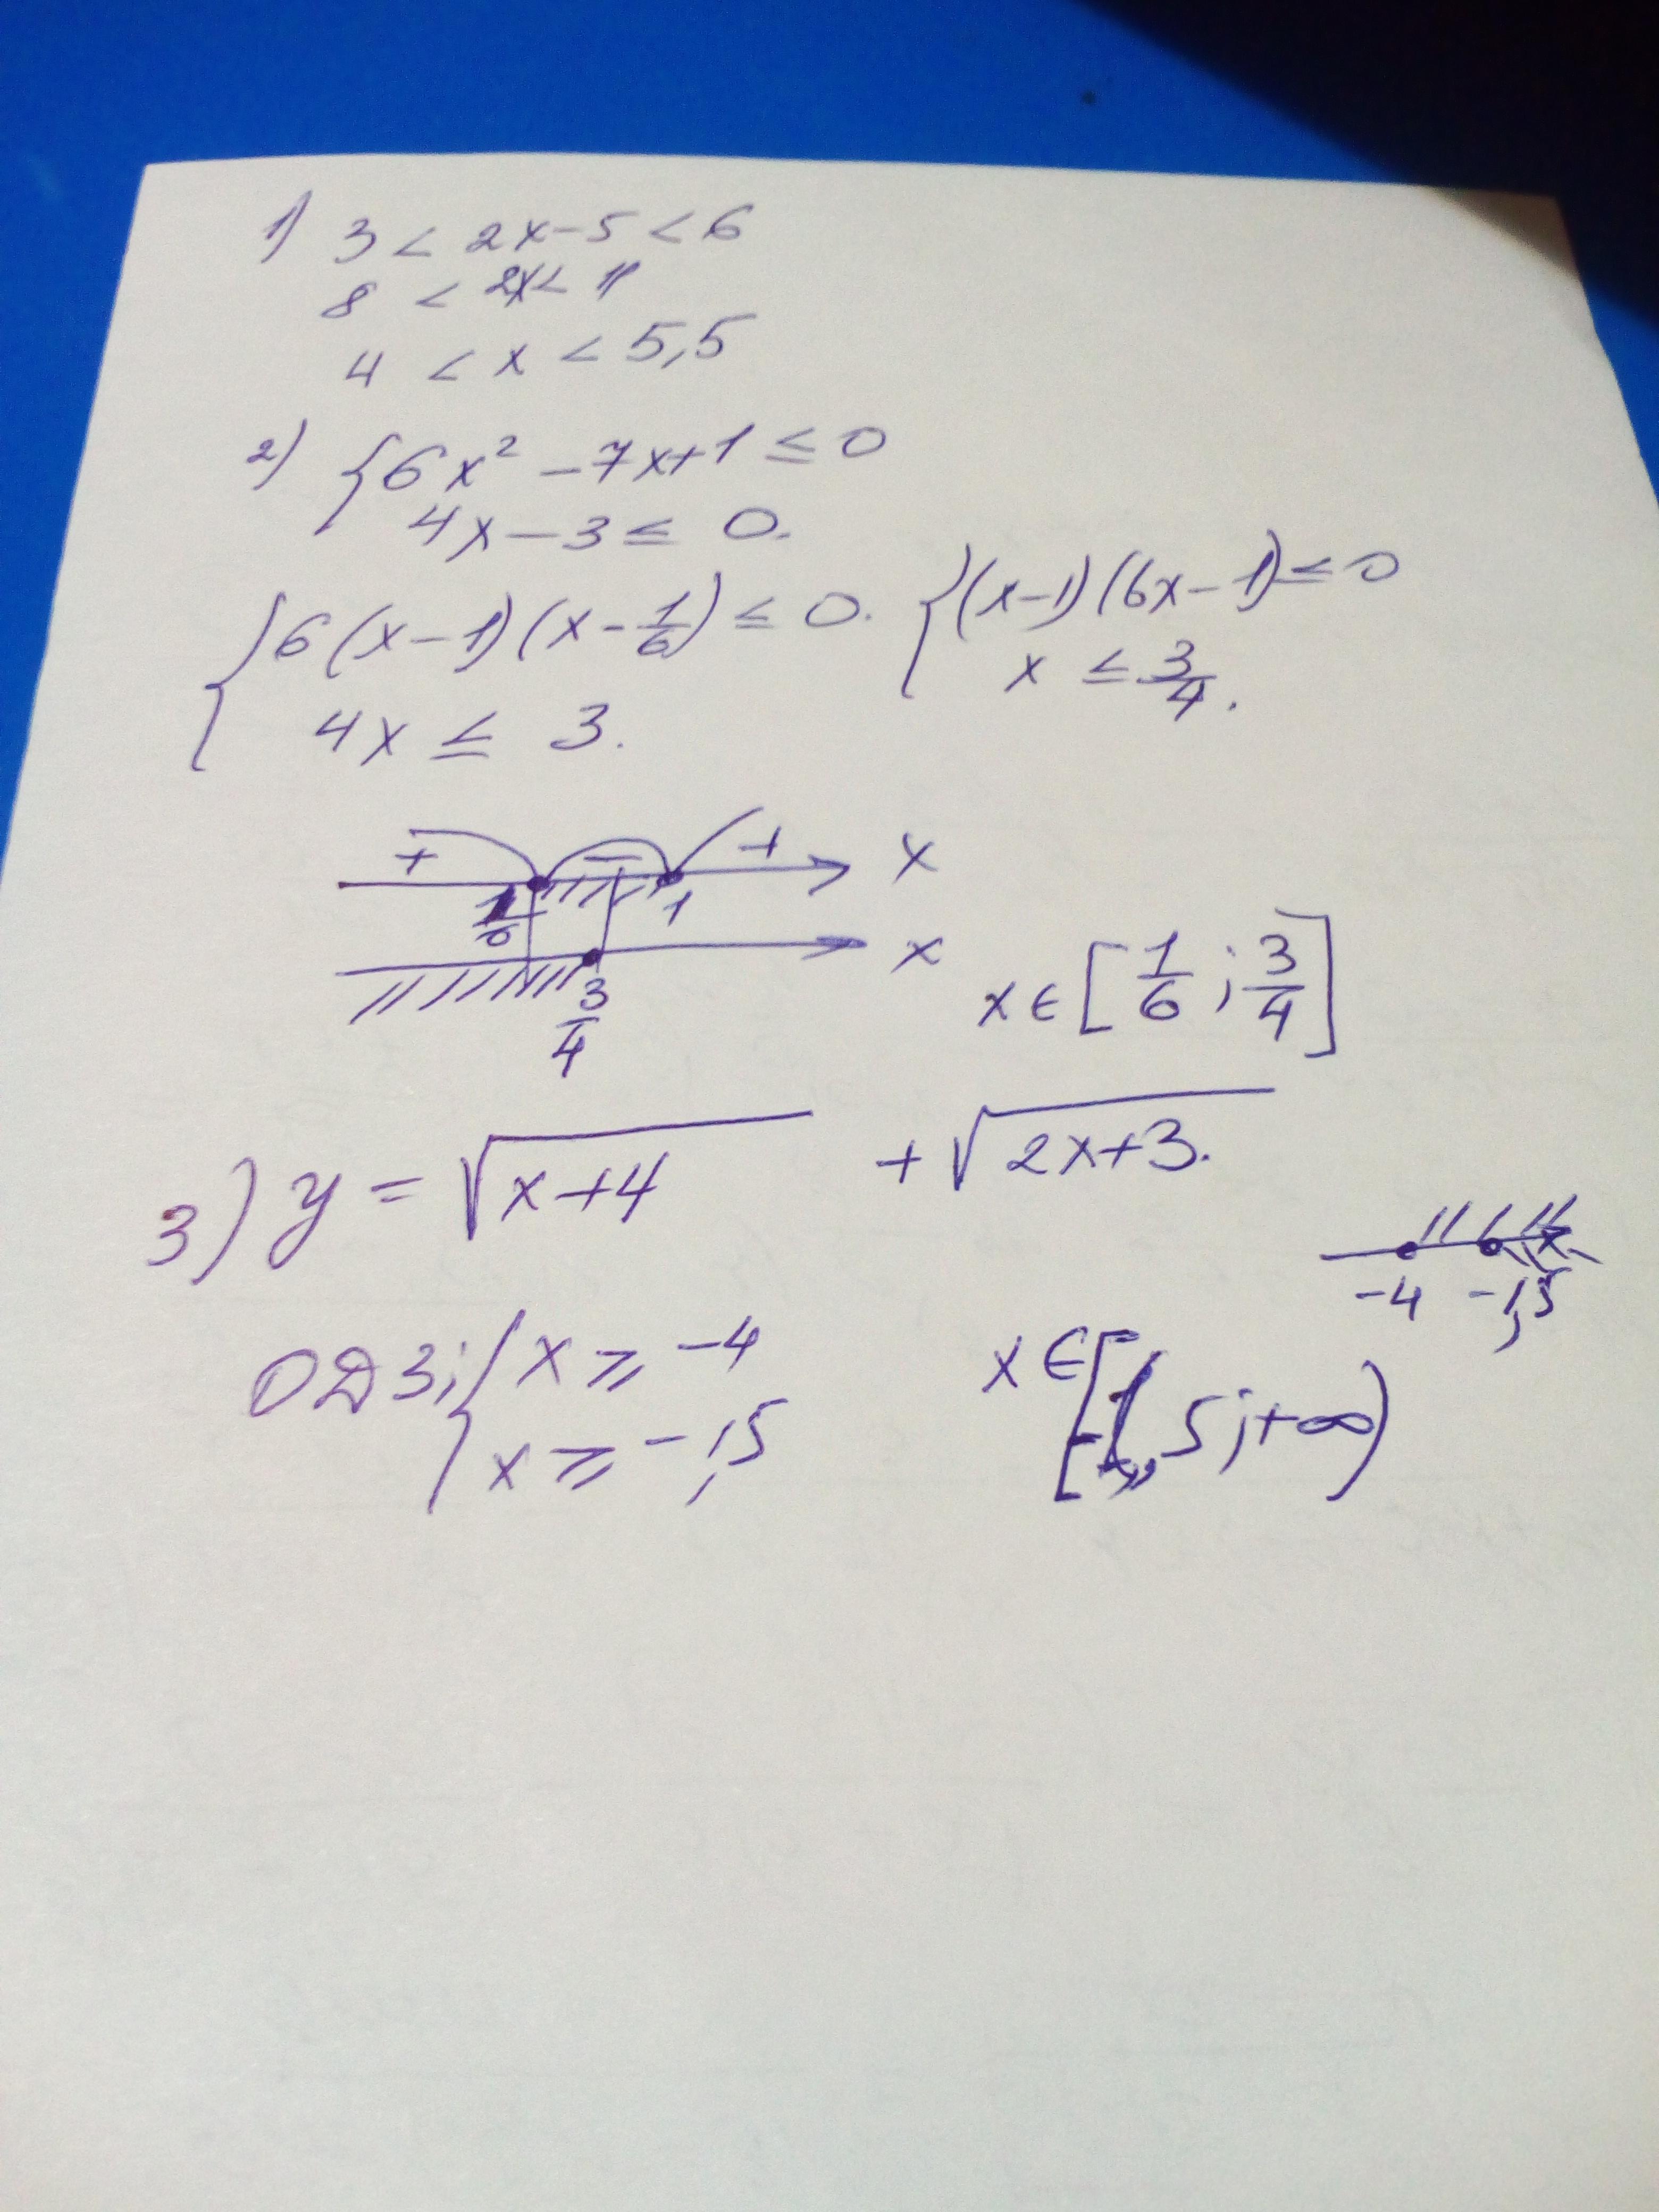 1) 3 < 2x-5 < 6
8 < 2x < 11
4 < x < 5,5
2) { 6x² - 7x+1 ≤ 0
4x - 3 ≤ 0.
{ 6(x-1)(x - 1/6) ≤ 0. { (x-1)(6x-1) ≤ 0
4x ≤ 3. x ≤ 3/4.
+ - + x
1/6 1
x
3/4 x ∈ [1/6 ; 3/4]
3) y = √x+4 + √2x+3.
-4 -1,5 x
ОДЗ: { x ⩾ -4
x ⩾ -1,5 x ∈ [-1,5; +∞)